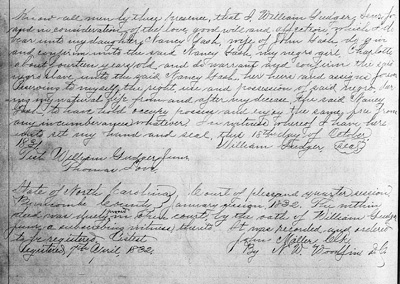 Know all men by these presence, that I, William Gudger Senr. for
and in consideration of the love good will and affection which I do
bear unto my daughter Nancy Cash, wife of John Cash, do give
and confirm unto the said Nancy Cash my negro girl Charlotte
about fourteen years old, and do warrant and confirm the said
negro slave, unto the said Nancy Cash, her heirs and assigns forever.
Reserving to myself the right, use and possession of said negro, for
my natural life from and after my decease, the said Nancy
Cash to have hold occupy possess and enjoy the same free from
any incumbrances whatever. In witness whereof I have here
unto set my hand and seal, this 18th day of October
1831. William Gudger Seal
Test William Gudger Junr
Thomas
State of North Carolina Court of pleas and quarter session
Buncombe County January Session 1832. The within
deed was duly proven in open court, by the oath of William Gudger
a subscribing witness thereto. It was recorded and ordered
to be registered, Attest Miller Clk
Registered, April, 1832. By N. W. Woodfin D.C.